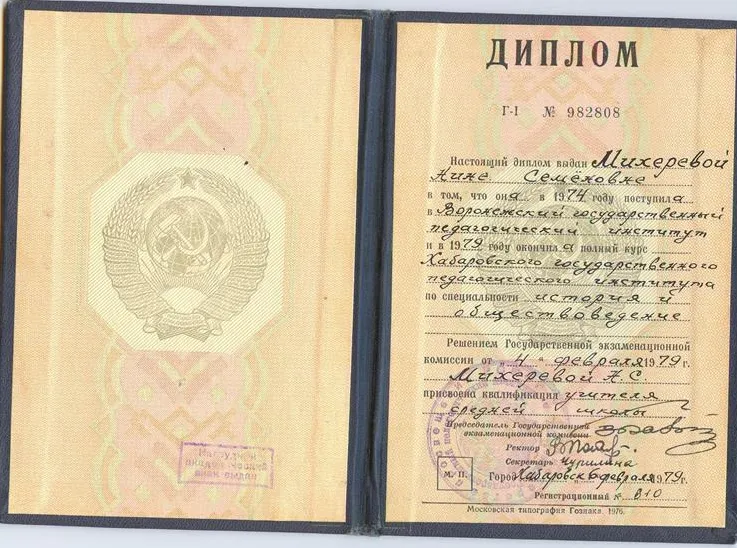 Нагрудный
академический
знак выдан
ДИПЛОМ
Г-I № 982808
Настоящий диплом выдан Михеревой
Нине Семёновне
в том, что она в 1974 году поступила
в Воронежский государственный
педагогический институт
и в 1979 году окончила полный курс
Хабаровского государственного
педагогического института
по специальности история и
обществоведение
Решением Государственной экзаменационной
комиссии от „4“ февраля 1979 г.
Михеревой Н.С.
присвоена квалификация учителя
средней школы
Председатель Государственной
экзаменационной комиссии
Ректор
Секретарь Чурилина
М. П.
Город Хабаровск 6 февраля 1979 г.
Регистрационный №
Московская типография Гознака. 1976.